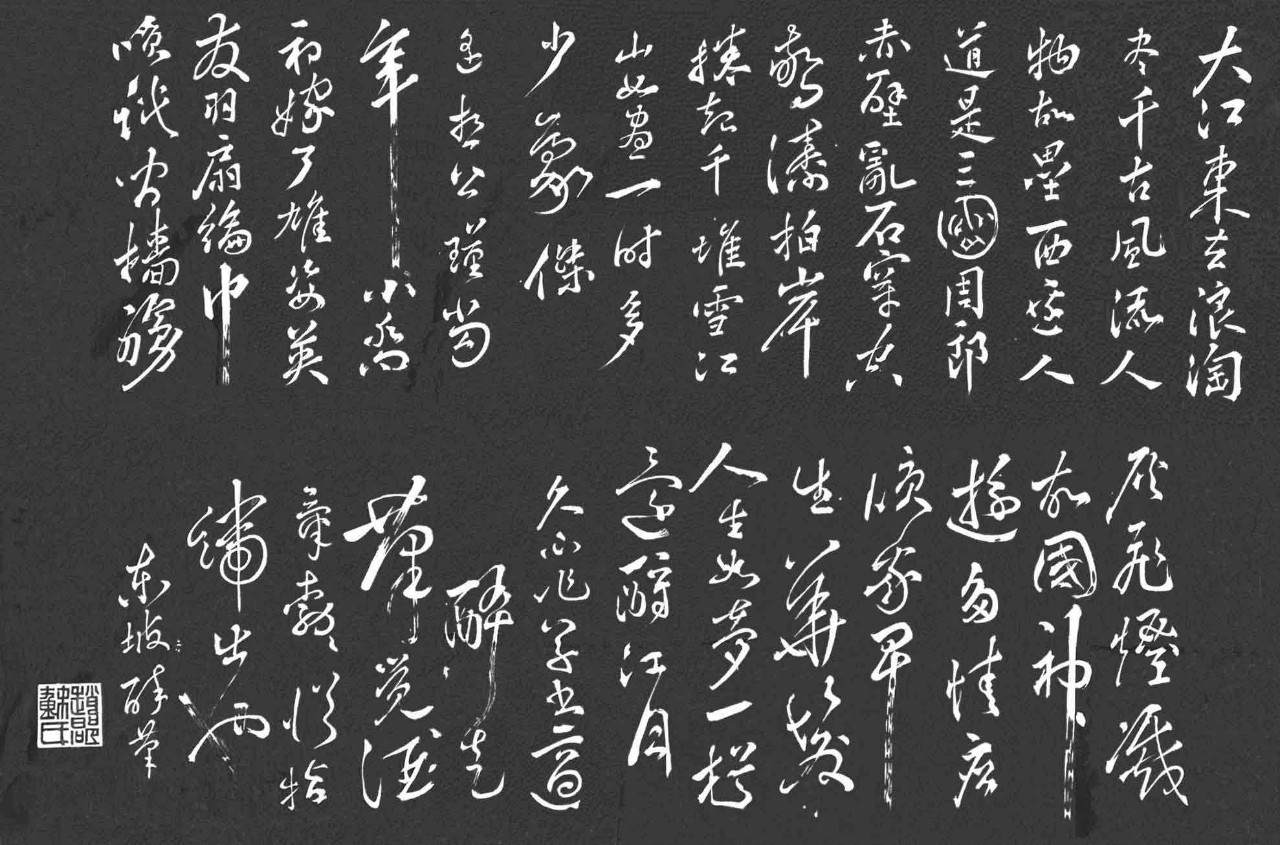 大江東去浪淘
尽千古風流人
物故壘西邊人
道是三國周郎
赤壁亂石穿空
驚濤拍岸
捲起千堆雪江
山如畫一時多
少豪傑
遙想公瑾當
年小喬
初嫁了雄姿英
发羽扇綸巾
咲談間檣艣
灰飛煙滅
故國神
遊多情應
咲我早
生華髮
人生如夢一樽
還酹江月
久不作草書適
醉走
筆覺酒
氣勃勃從指
端出也
東坡醉筆
趙郡蘇氏